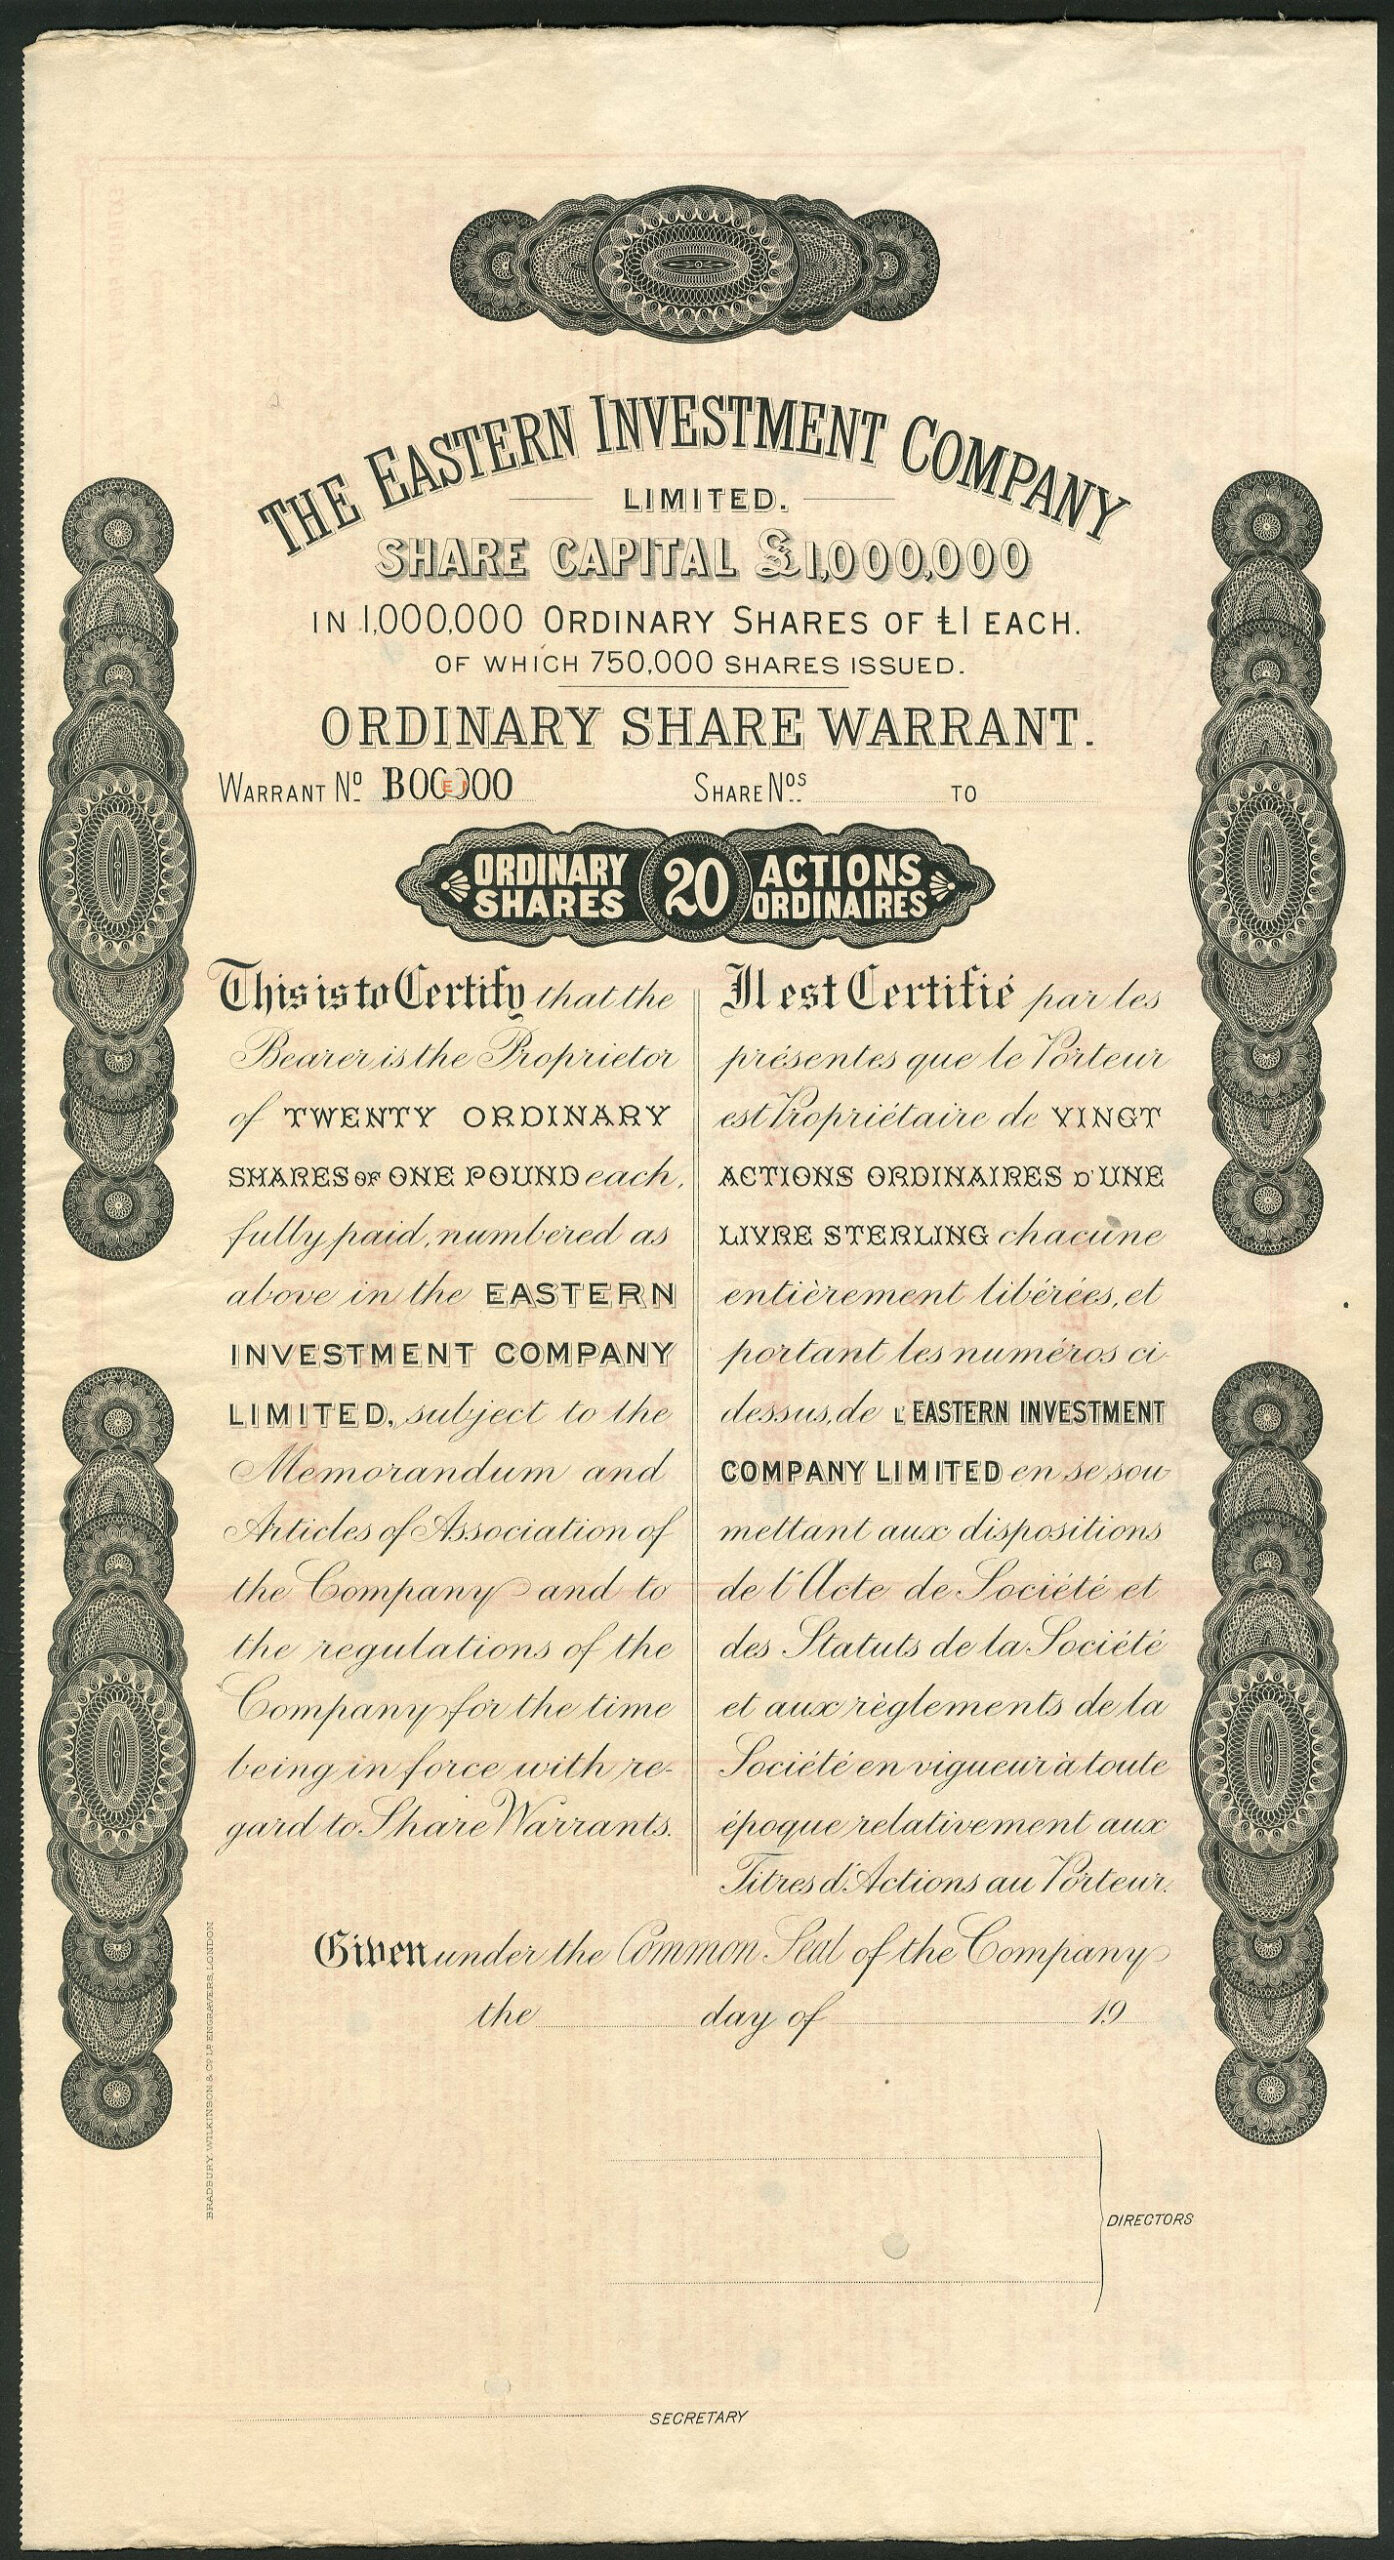 THE EASTERN INVESTMENT COMPANY
LIMITED.
SHARE CAPITAL £1,000,000
IN 1,000,000 ORDINARY SHARES OF £1 EACH.
OF WHICH 750,000 SHARES ISSUED.
ORDINARY SHARE WARRANT.
WARRANT No B00000 SHARE Nos TO
ORDINARY SHARES 20 ACTIONS ORDINAIRES
This is to Certify that the
Bearer is the Proprietor
of TWENTY ORDINARY
SHARES OF ONE POUND each,
fully paid, numbered as
above in the EASTERN
INVESTMENT COMPANY
LIMITED, subject to the
Memorandum and
Articles of Association of
the Company and to
the regulations of the
Company for the time
being in force with re-
gard to Share Warrants.
Il est Certifié par les
présentes que le Porteur
est Propriétaire de VINGT
ACTIONS ORDINAIRES D'UNE
LIVRE STERLING chacune
entièrement libérées, et
portant les numéros ci-
dessus, de L'EASTERN INVESTMENT
COMPANY LIMITED en se sou-
mettant aux dispositions
de l'Acte de Société et
des Statuts de la Société
et aux règlements de la
Société en vigueur à toute
époque relativement aux
Titres d'Actions au Porteur.
Given under the Common Seal of the Company
the day of 19
DIRECTORS
SECRETARY
BRADBURY, WILKINSON & Co Ld ENGRAVERS, LONDON